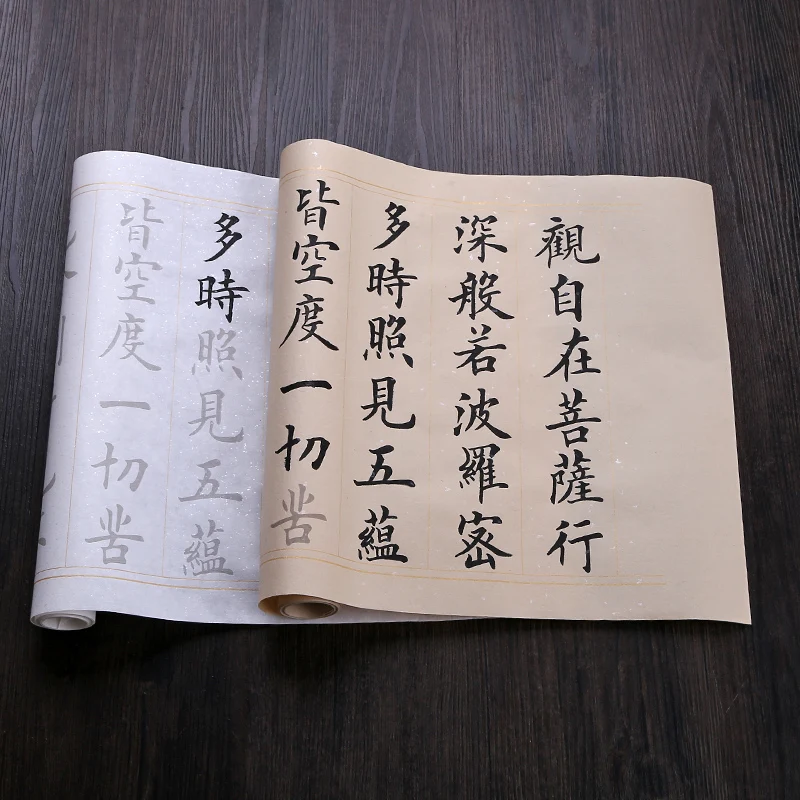 觀自在菩薩行
深般若波羅密
多時照見五蘊
皆空度一切苦
多時照見五蘊
皆空度一切苦